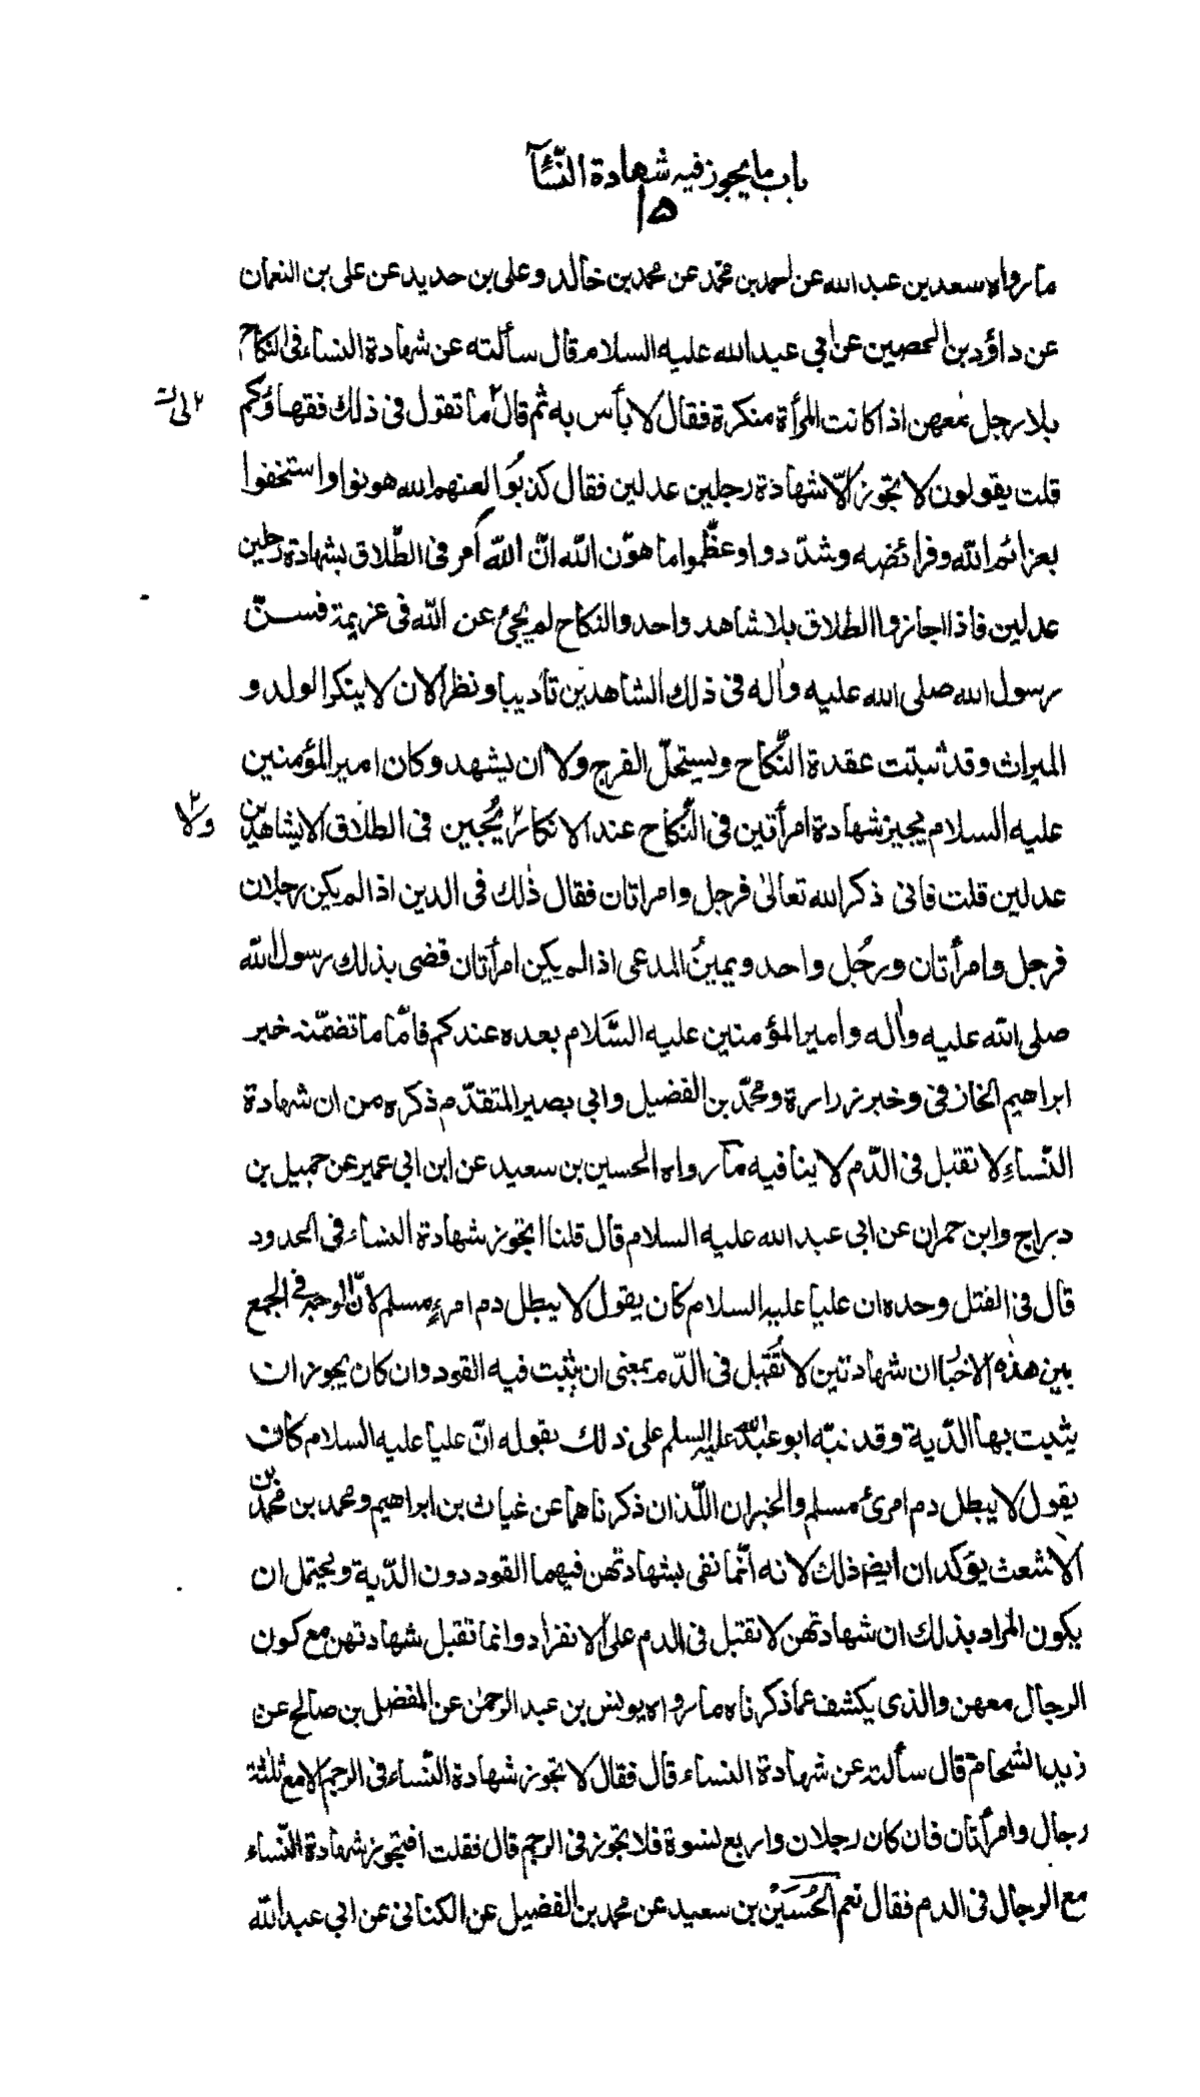 باب ما يجوز فيه شهادة النّسآء
١٥
ما رواه سعد بن عبد الله عن احمد بن محمّد عن محمد بن خالد وعلى بن حديد عن على بن النعمان
عن داؤد بن الحصين عن ابي عبد الله عليه السلام قال سألته عن شهادة النساء فى النكاح
بلا رجل معهن اذا كانت المرأة منكرة فقال لا بأس به ثم قال ٢ ما تقول فى ذلك فقهاؤكم
٢ لى
قلت يقولون لا تجوز الّا شهادة رجلين عدلين فقال كذبوا لعنهم الله هونوا واستخفوا
بعزائم الله وفرائضه وشدّدوا وعظّموا ما هوّن الله انّ الله أمر فى الطّلاق بشهادة رجلين
عدلين فاذا اجازوا الطلاق بلا شاهد واحد والنكاح لم يجئ عن الله فى عزيمة فسنّ
رسول الله صلى الله عليه واٰله فى ذلك الشاهدين تأديبا ونظرا لان لا ينكر الولد و
الميراث وقد ثبتت عقدة النّكاح ويستحلّ الفرج ولا ان يشهد وكان امير المؤمنين
عليه السلام يجيز شهادة امرأتين فى النّكاح عند الانكار ٢ يُجيز فى الطلاق الا بشاهدين
ولا ٢
عدلين قلت فانى ذكر الله تعالىٰ فرجل وامراتان فقال ذٰلك فى الدين اذا لم يكن رجلان
فرجل وامرأتان ورجُل واحد ويمينُ المدعى اذا لم يكن امرأتان قضى بذلك رسول الله
صلى الله عليه واٰله وامير المؤمنين عليه السَّلام بعده عندكم فامّا ما تضمّنه خبر
ابراهيم الخارفى وخبر زرارة ومحمّد بن الفضيل وابي بصير المتقدّم ذكره من ان شهادة
النّساءِ لا تقبل فى الدّم لا ينافيه ما رواه الحسين بن سعيد عن ابن ابي عمير عن جميل بن
دراج وابن حمران عن ابى عبد الله عليه السلام قال قلنا اتجوز شهادة النساء فى الحدود
قال فى القتل وحده ان عليا عليه السلام كان يقول لا يبطل دم امرءٍ مسلم لانّ الوجه فى الجمع
بين هذه الاخبار ان شهادتهن لا تُقبل فى الدّم بمعنى ان يثبت فيه القود وان كان يجوز ان
يثبت بها الدّية وقد نبّه ابو عبد الله عليه السلم على ذلك بقوله انّ عليا عليه السلام كان
يقول لا يبطل دم امرئ مسلم والخبران اللّذان ذكرناهما عن غياث بن ابراهيم ومحمد بن محمّد بن
الاشعث يؤكدان ايضا ذلك لانه انّما نفى بشهادتهن فيهما القود دون الدّية ويحتمل ان
يكون المراد بذلك ان شهادتهن لا تقبل فى الدم على الانفراد وانما تقبل شهادتهن مع كون
الرجال معهن والذى يكشف عما ذكرناه ما رواه يونس بن عبد الرحمٰن عن المفضل بن صالح عن
زيد الشحام قال سألته عن شهادة النساء قال فقال لا تجوز شهادة النّساء فى الرجم الا مع ثلٰثة
رجال وامرأتان فان كان رجلان واربع نسوة فلا تجوز فى الرجم قال فقلت افتجوز شهادة النّساء
مع الرجال فى الدم فقال نعم الحُسَيْن بن سعيد عن محمد بن الفضيل عن الكنانى عن ابي عبد الله